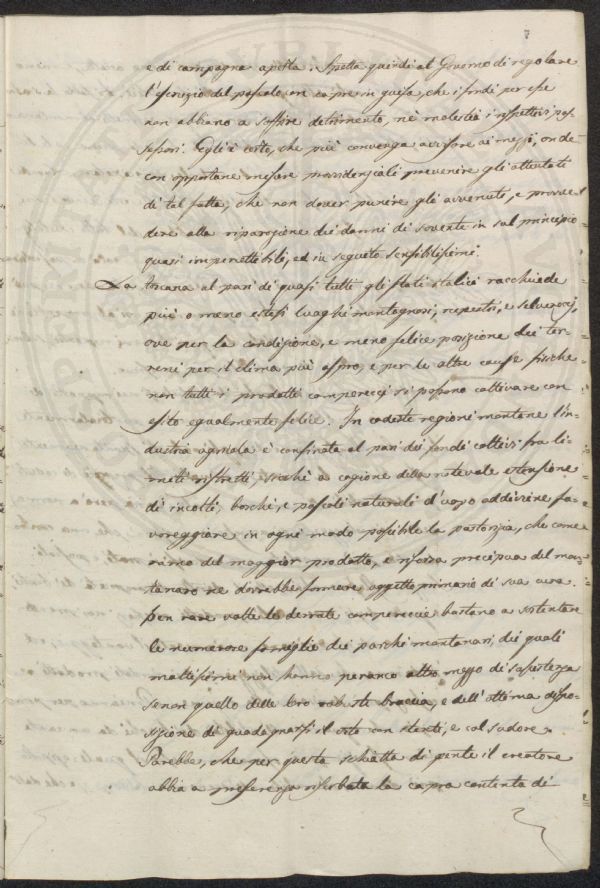 e di campagna aperta. Spetta quindi al Governo di regolare
l'esercizio del pascolo con capre in guisa, che i fondi per esse
non abbiano a soffrire detrimento, nè molestia i rispettivi pos-
sessori. Egli è certo, che più convenga avvisare ai mezzi, onde
con opportune misure provvidenziali prevenire gli attentati
di tal fatta, che non dover punire gli avvenuti, e provve-
dere alla riparazione dei danni di sovente in sul principio
quasi impercettibili, ed in seguito sensibilissimi.
La toscana al pari di quasi tutti gli stati italici racchiude
più o meno estesi luoghi montagnosi, ripesti, e selverecci,
ove per la condizione, e meno felice posizione dei ter-
reni per il clima più aspro, e per le altre cause fisiche
non tutti i prodotti camperecci si possono coltivare con
esito egualmente felice. In codeste regioni montane l'in-
dustria agricola è confinata al pari dei fondi coltivi fra li-
miti ristretti, sicchè a cagione della notevole estensione
di incolti, boschi, e pascoli naturali d'uopo addiviene fa-
voreggiare in ogni modo possibile la pastorizia, che come
ramo del maggior prodotto, e risorsa precipua del mon-
tanaro ne dovrebbe formare oggetto primario di sua cura.
Ben rare volte le derrate camperecce bastano a sostentare
le numerose famiglie dei parchi montanari, dei quali
moltissimi non hanno peranco altro mezzo di sussistenza
senon quello delle loro robuste braccia, e dell'ottima dispo-
sizione di guadagnarsi il vitto con istenti, e col sudore.
Parebbe, che per questa schiatta di gente il creatore
abbia a preferenza riserbata la capra contenta di